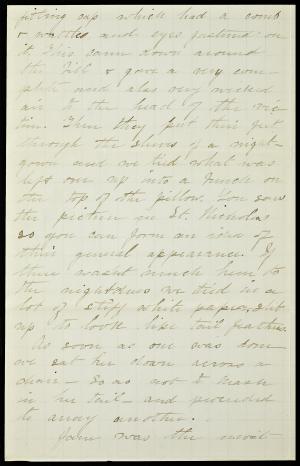 fitting cap which had a comb
& wattles and eyes fastened on
it. This came down around
the bill & gave a very com-
plete and also very wicked
air to the head of the vic-
tim. Then they put their feet
through the sleeves of a night-
gown and we tied what was
left over up into a bunch on
the top of the pillow. You saw
the picture in St. Nicholas
so you can form an idea of
their general appearance. If
there wasn't much hem to
the nightdress we tied in a
lot of stiff white paper, slit
up to look like tail feathers.
As soon as one was done
we sat her down across a
chair - so as not to mash
in her tail - and proceeded
to array another.
Jane was the most